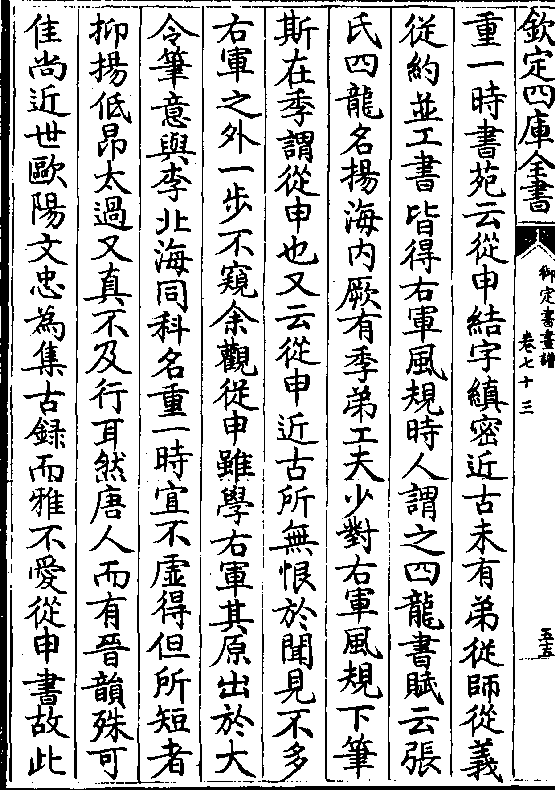 欽定四庫全書
御定書畫譜
卷七十三
五五
重一時書苑云從申結字縝密近古未有弟從師從義
從約並工書皆得右軍風規時人謂之四龍書賦云張
氏四龍名揚海内厥有季弟工夫少對右軍風規下筆
斯在季謂從申也又云從申近古所無恨於聞見不多
右軍之外一步不窺余觀從申雖學右軍其原出於大
令筆意與李北海同科名重一時宜不虛得但所短者
抑揚低昂太過又真不及行耳然唐人而有晉韻殊可
佳尚近世歐陽文忠為集古録而雅不愛從申書故此